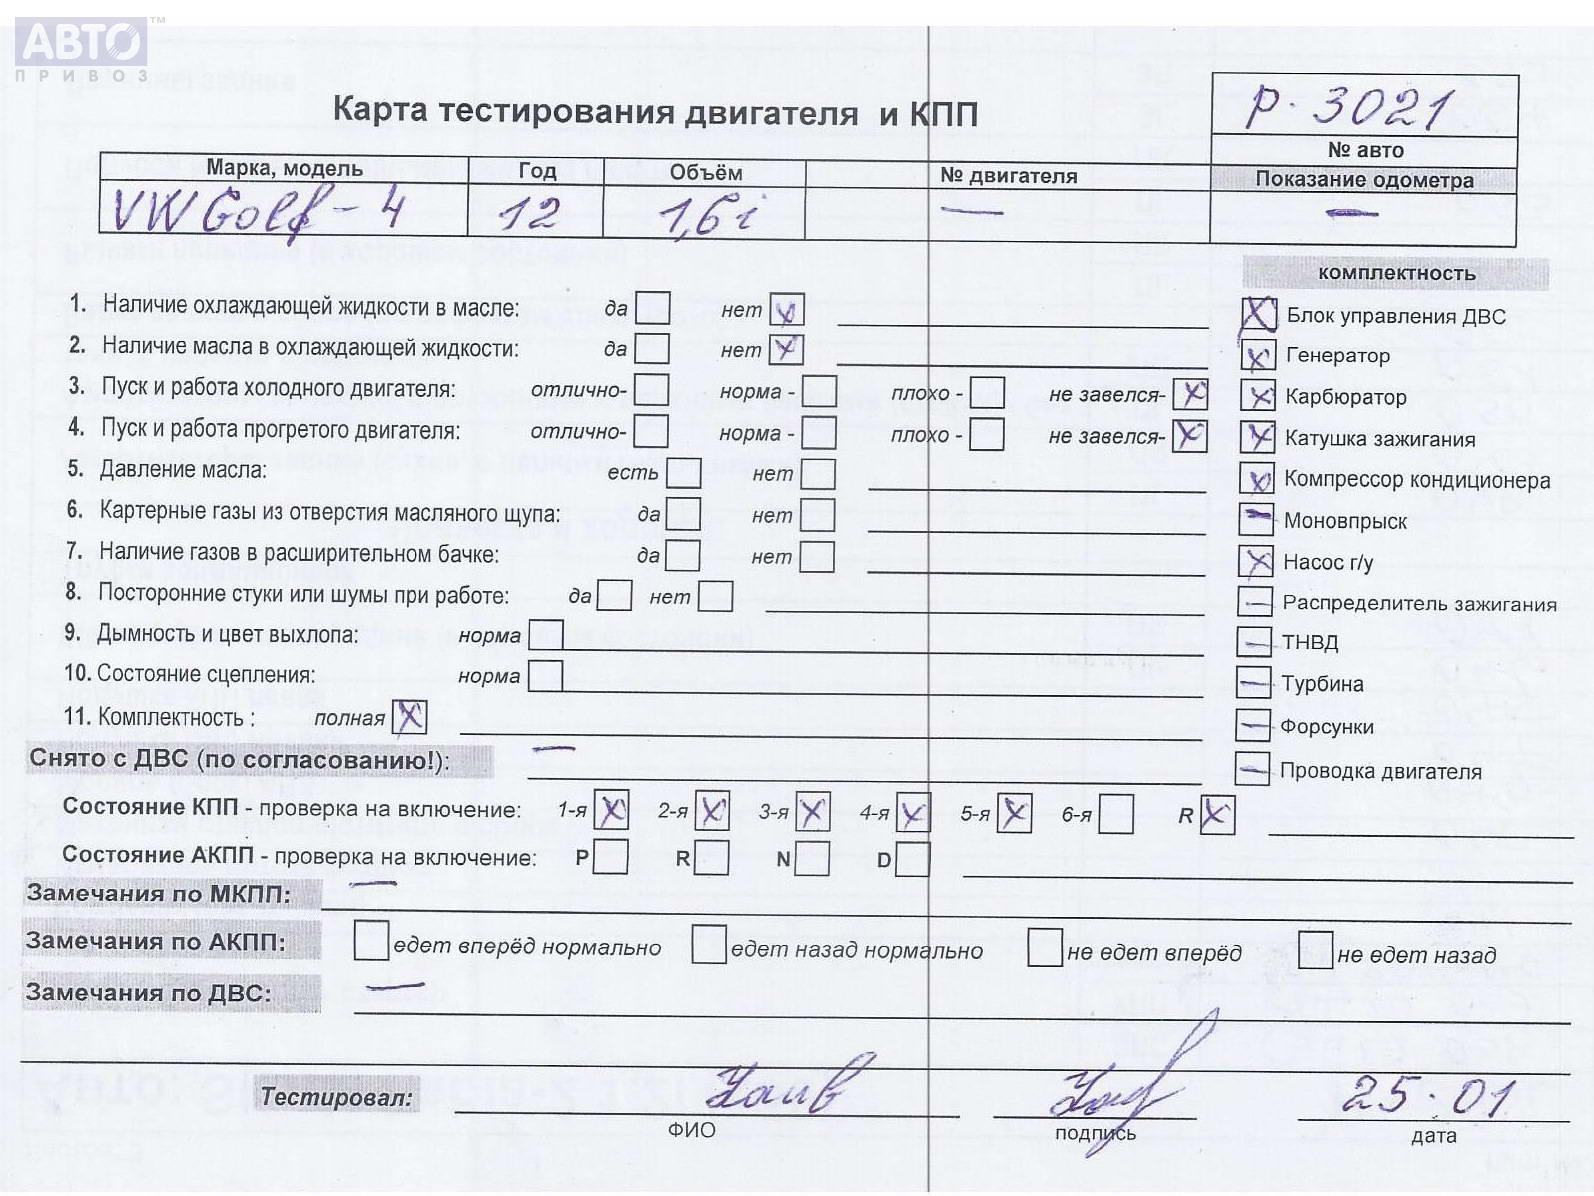 АВТО™
ПРИВОЗ
Карта тестирования двигателя и КПП
Р. 3021
№ авто
Марка, модель Год Объём № двигателя Показание одометра
VW Golf - 4 12 1,6i — —
комплектность
1. Наличие охлаждающей жидкости в масле: да нет x
2. Наличие масла в охлаждающей жидкости: да нет x
3. Пуск и работа холодного двигателя: отлично- норма - плохо - не завелся- x
4. Пуск и работа прогретого двигателя: отлично- норма - плохо - не завелся- x
5. Давление масла: есть нет
6. Картерные газы из отверстия масляного щупа: да нет
7. Наличие газов в расширительном бачке: да нет
8. Посторонние стуки или шумы при работе: да нет
9. Дымность и цвет выхлопа: норма
10. Состояние сцепления: норма
11. Комплектность : полная x
x Блок управления ДВС
x Генератор
x Карбюратор
x Катушка зажигания
x Компрессор кондиционера
— Моновпрыск
x Насос г/у
— Распределитель зажигания
— ТНВД
— Турбина
— Форсунки
— Проводка двигателя
Снято с ДВС (по согласованию!): —
Состояние КПП - проверка на включение: 1-я x 2-я x 3-я x 4-я x 5-я x 6-я R x
Состояние АКПП - проверка на включение: P R N D
Замечания по МКПП: —
Замечания по АКПП: едет вперёд нормально едет назад нормально не едет вперёд не едет назад
Замечания по ДВС: —
Тестировал: 25.01
ФИО подпись дата